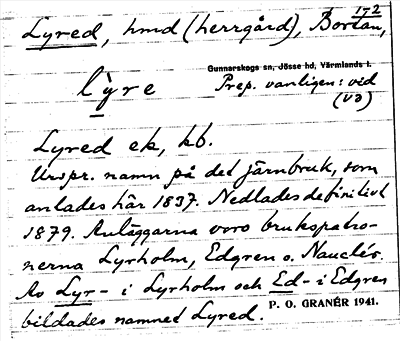 172
Lyred, hmd (herrgård), Bortan,
Gunnarskogs sn, Jösse hd, Värmlands l.
lyre Prep. vanligen: vid
(və)
Lyred ek, kb.
Urspr. namn på det järnbruk, som
anlades här 1837. Nedlades definitivt
1879. Anläggarna voro brukspatro-
nerna Lyrholm, Edgren o. Nauclér.
Av Lyr- i Lyrholm och Ed- i Edgren
bildades namnet Lyred.
P. O. GRANÉR 1941.